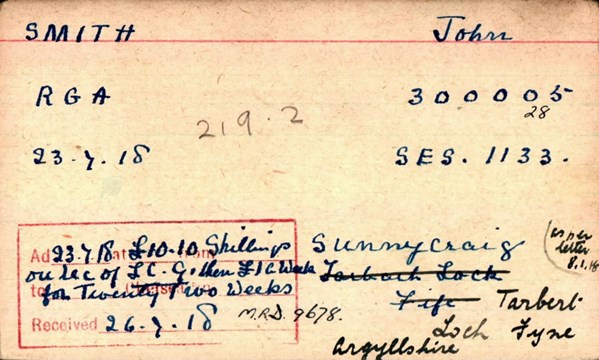 SMITH John
RGA 300005
28
219.2
23.7.18 SES. 1133.
23.7.18 £10.10 Shillings
on rec of L.C.G. then £1 a Week
for Twenty Two Weeks
Received 26.7.18
M.R.D. 9678.
Sunnycraig
(as per
letter
8.1.18
Tarbert Lock
Fife Tarbert
Loch Fyne
Argyllshire